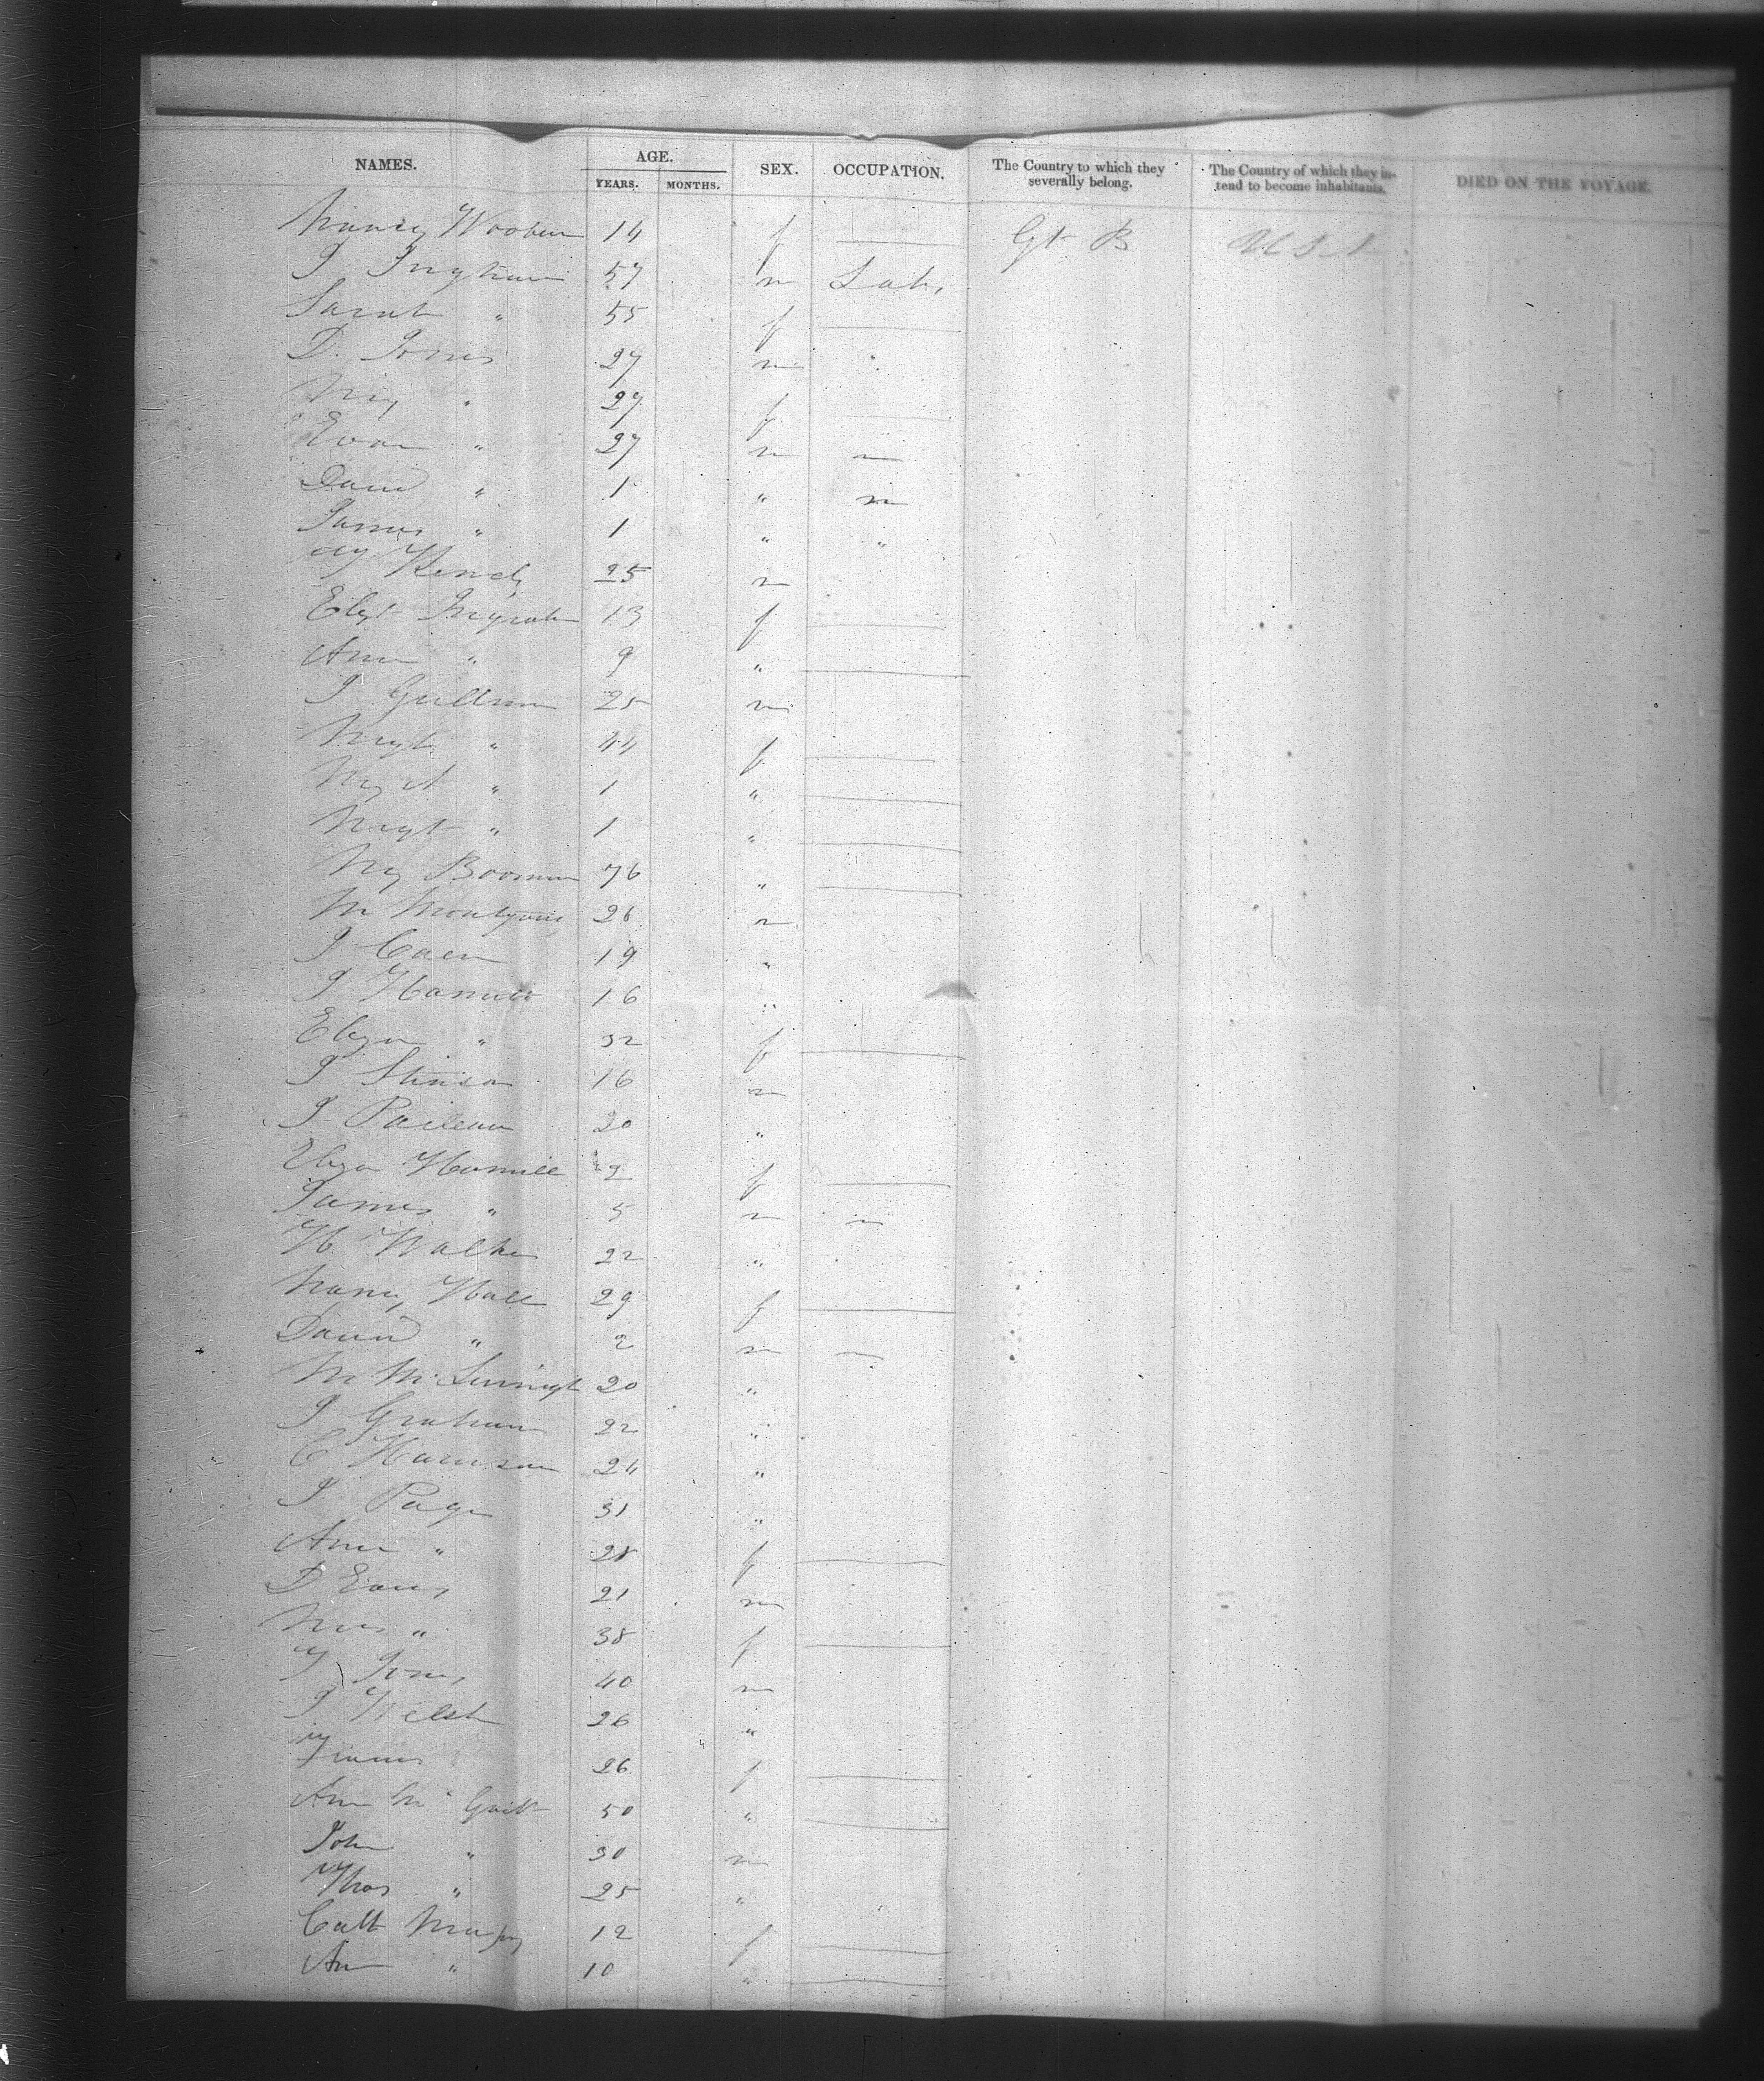 NAMES. AGE. SEX. OCCUPATION. The Country to which they severally belong. The Country of which they intend to become inhabitants. DIED ON THE VOYAGE.
YEARS. MONTHS.
14 f Gt B U S A
J Ingham 57 m Lab,
Sarah " 55 f
D. Jones 27 m "
My " 27 f
Evan " 27 m
David " 1 "
James " 1 " "
25 m
Elizt 13 f
Ann " 9 "
J 25 m
Mgt " 44 f
" 1 "
Mgt " 1 "
My 76 "
M 26 m
J 19 "
J Hamill 16 "
Eliza " 32 f
J Stinson 16 m
J 20 "
Eliza Hamill 2 f
James " 5 m
W Walker 22 "
Nancy Hall 29 f
David " 2 m
20 "
J Graham 22 "
C Harrison 24 "
J Page 31 "
Ann " 28 f
D Evans 21 m
Mrs " 38 f
Jones 40 m
J Welsh 26 "
26 f
Ann Mc 50 "
John " 30 m
Thos " 25 "
Cath Murphy 12 f
Ann " 10 "